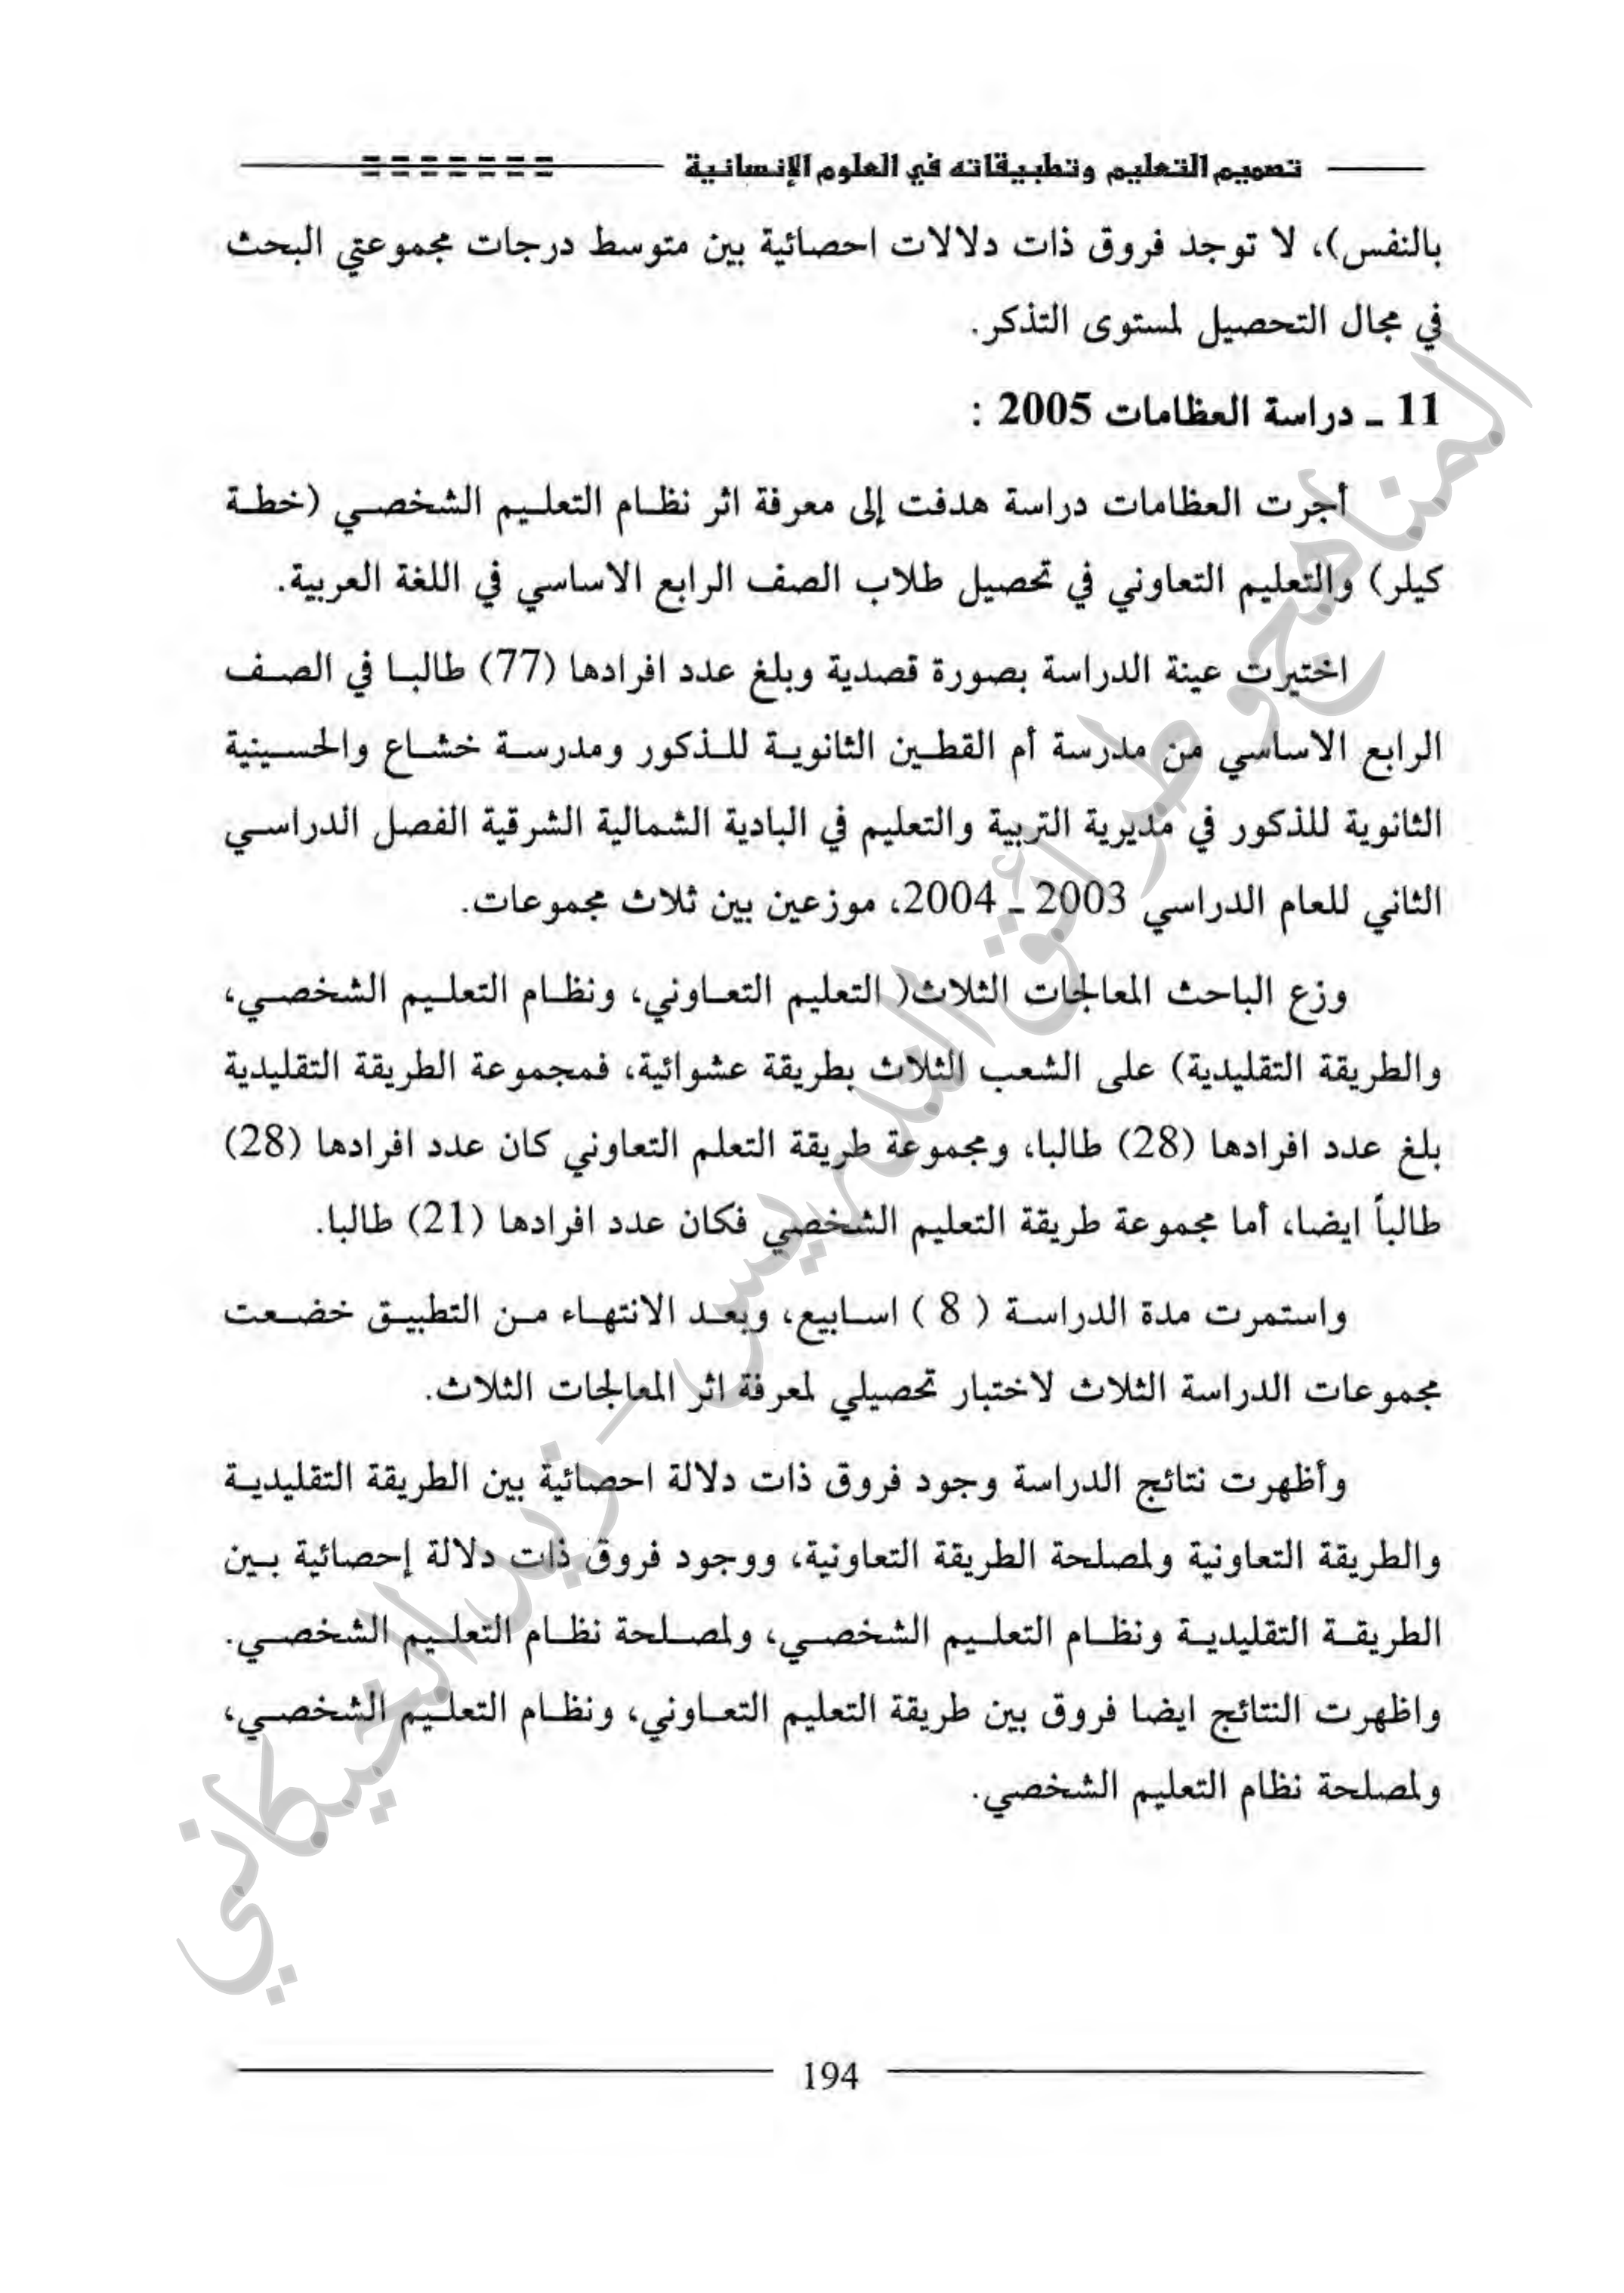 تصميم التعليم وتطبيقاته في العلوم الإنسانية
بالنفس)، لا توجد فروق ذات دلالات احصائية بين متوسط درجات مجموعتي البحث
في مجال التحصيل لمستوى التذكر.
11 ـ دراسة العظامات 2005 :
أجرت العظامات دراسة هدفت إلى معرفة اثر نظام التعليم الشخصي (خطة
كيلر) والتعليم التعاوني في تحصيل طلاب الصف الرابع الاساسي في اللغة العربية.
اختيرت عينة الدراسة بصورة قصدية وبلغ عدد افرادها (77) طالبا في الصف
الرابع الاساسي من مدرسة أم القطين الثانوية للذكور ومدرسة خشاع والحسينية
الثانوية للذكور في مديرية التربية والتعليم في البادية الشمالية الشرقية الفصل الدراسي
الثاني للعام الدراسي 2003 ـ 2004، موزعين بين ثلاث مجموعات.
وزع الباحث المعالجات الثلاث( التعليم التعاوني، ونظام التعليم الشخصي،
والطريقة التقليدية) على الشعب الثلاث بطريقة عشوائية، فمجموعة الطريقة التقليدية
بلغ عدد افرادها (28) طالبا، ومجموعة طريقة التعلم التعاوني كان عدد افرادها (28)
طالباً ايضا، أما مجموعة طريقة التعليم الشخصي فكان عدد افرادها (21) طالبا.
واستمرت مدة الدراسة ( 8 ) اسابيع، وبعد الانتهاء من التطبيق خضعت
مجموعات الدراسة الثلاث لاختبار تحصيلي لمعرفة اثر المعالجات الثلاث.
وأظهرت نتائج الدراسة وجود فروق ذات دلالة احصائية بين الطريقة التقليدية
والطريقة التعاونية ولمصلحة الطريقة التعاونية، ووجود فروق ذات دلالة إحصائية بين
الطريقة التقليدية ونظام التعليم الشخصي، ولمصلحة نظام التعليم الشخصي.
واظهرت النتائج ايضا فروق بين طريقة التعليم التعاوني، ونظام التعليم الشخصي،
ولمصلحة نظام التعليم الشخصي.
194
المناهج وطرائق التدريس - زيد الخيكاني